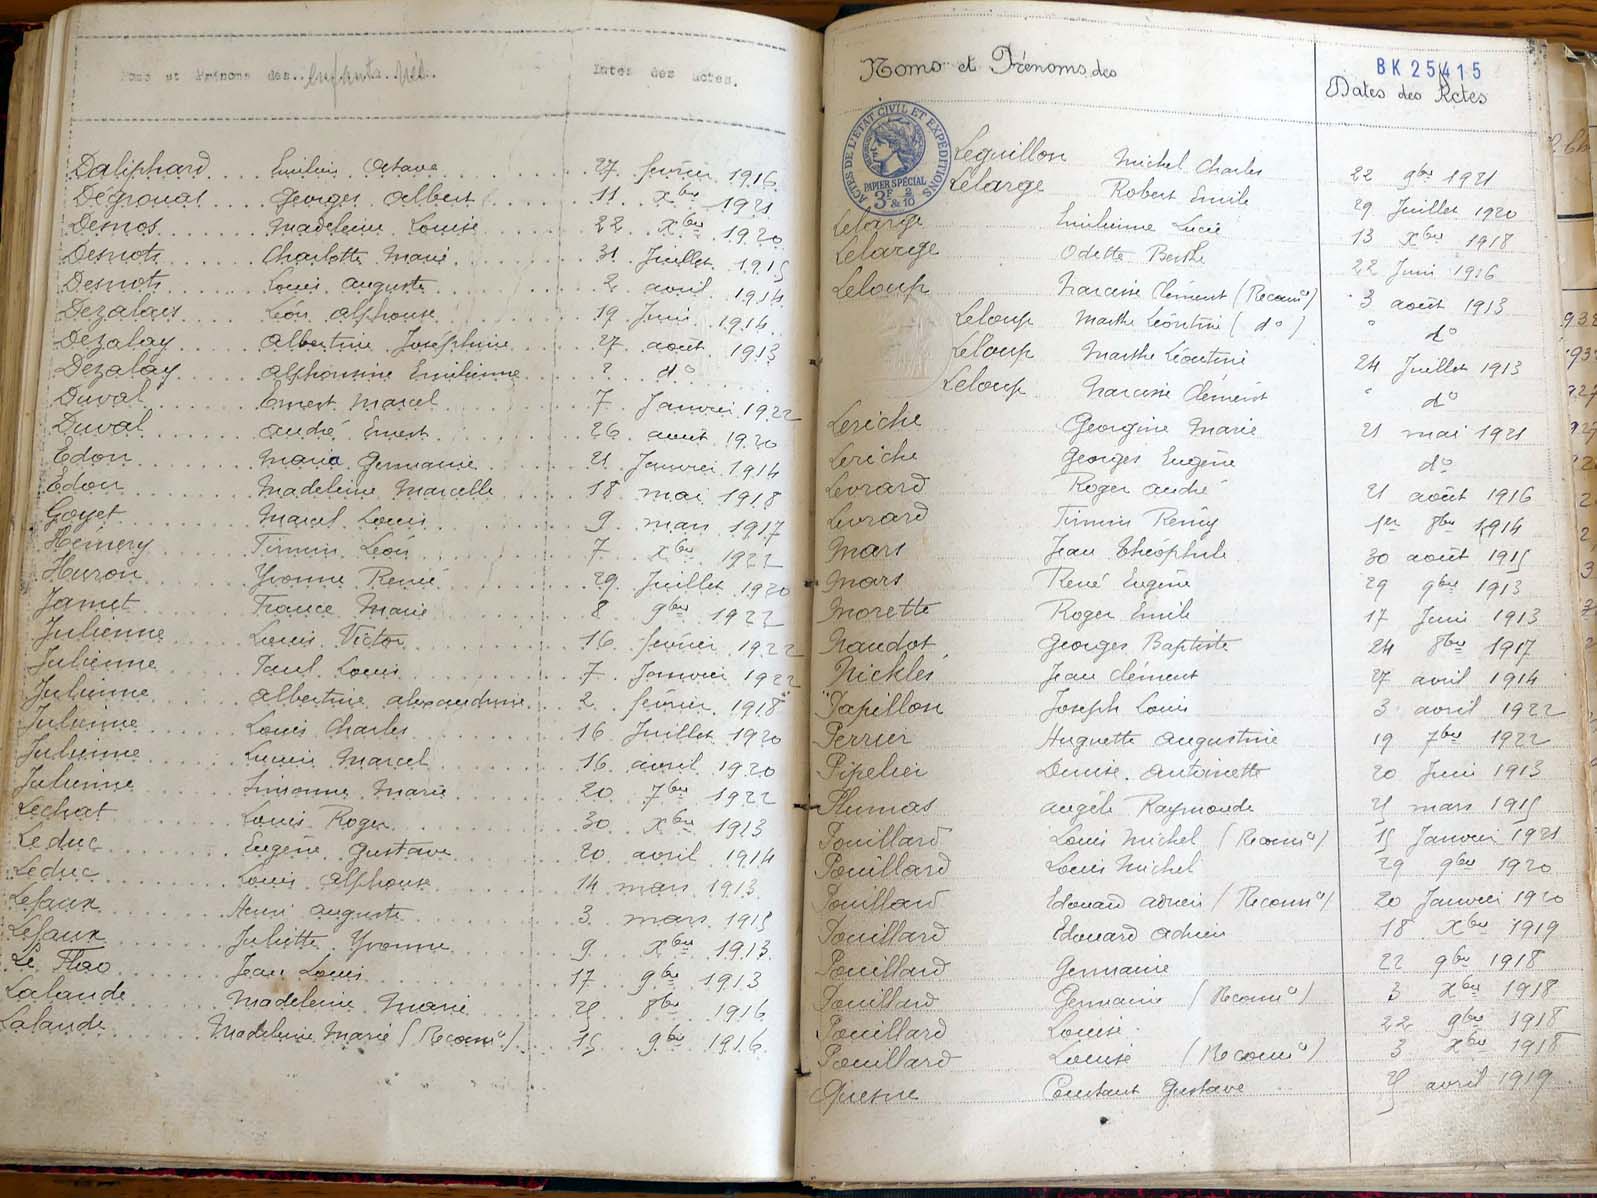 Noms et Prénoms des enfants nés. Dates des Actes.
Daliphard Emilien Octave 27 février 1916
Dégrouas Georges Albert 11 Xbre 1921
Desnos Madeleine Louise 22 Xbre 1920
Desnots Charlotte Marie 31 Juillet 1915
Desnots Louis Auguste 2 avril 1914
Dezalais Léon Alphonse 19 Juin 1914
Dezalay Albertine Joséphine 27 août 1913
Dezalay Alphonsine Emilienne do
Duval Ernest Marcel 7 Janvier 1922
Duval André Ernest 26 août 1920
Edon Maria Germaine 21 Janvier 1914
Edon Madeleine Marcelle 18 mai 1918
Goyet Marcel Louis 9 mars 1917
Hémery Firmin Léon 7 Xbre 1922
Huron Yvonne Renée 29 Juillet 1920
Jamet France Marie 8 9bre 1922
Julienne Louis Victor 16 février 1922
Julienne Paul Louis 7 Janvier 1922
Julienne Albertine Alexandrine 2 février 1918
Julienne Louis Charles 16 Juillet 1920
Julienne Lucien Marcel 16 avril 1920
Julienne Simonne Marie 20 7bre 1922
Lechat Louis Roger 30 Xbre 1913
Leduc Eugène Gustave 20 avril 1914
Leduc Louis Alphonse 14 mars 1913
Lefaux Henri Auguste 3 mars 1915
Lefaux Juliette Yvonne 9 Xbre 1913
Le Flao Jean Louis 17 9bre 1913
Lalande Madeleine Marie 25 8bre 1916
Lalande Madeleine Marie (Reconnce) 15 9bre 1916
Noms et Prénoms des
BK 25415
Dates des Actes
ACTES DE L'ETAT CIVIL ET EXPEDITIONS
PAPIER SPÉCIAL
3F & 2/10
Leguillon Michel Charles 22 9bre 1921
Lelarge Robert Emile 29 Juillet 1920
Lelarge Emilienne Lucie 13 Xbre 1918
Lelarge Odette Berthe 22 Juin 1916
Leloup Narcisse Clément (Reconnce) 3 août 1913
Leloup Marthe Léontine (do) " do
Leloup Marthe Léontine 24 Juillet 1913
Leloup Narcisse Clément " do
Leriche Georgine Marie 21 mai 1921
Leriche Georges Eugène do
Levrard Roger André 21 août 1916
Levrard Firmin Rémy 1er 8bre 1914
Mars Jean Théophile 30 août 1915
Mars René Eugène 29 9bre 1913
Morette Roger Emile 17 Juin 1913
Naudot Georges Baptiste 24 8bre 1917
Nicklès Jean Clément 27 avril 1914
Papillon Joseph Louis 3 avril 1922
Perrier Huguette Augustine 19 7bre 1922
Pipelier Denise Antoinette 20 Juin 1913
Plumas Angèle Raymonde 25 mars 1915
Pouillard Louis Michel (Reconnce) 15 Janvier 1921
Pouillard Louis Michel 29 9bre 1920
Pouillard Edouard Adrien (Reconnce) 20 Janvier 1920
Pouillard Edouard Adrien 18 Xbre 1919
Pouillard Germaine 22 9bre 1918
Pouillard Germaine (Reconnce) 3 Xbre 1918
Pouillard Louise 22 9bre 1918
Pouillard Louise (Reconnce) 3 Xbre 1918
Quesne Constant Gustave 25 avril 1919